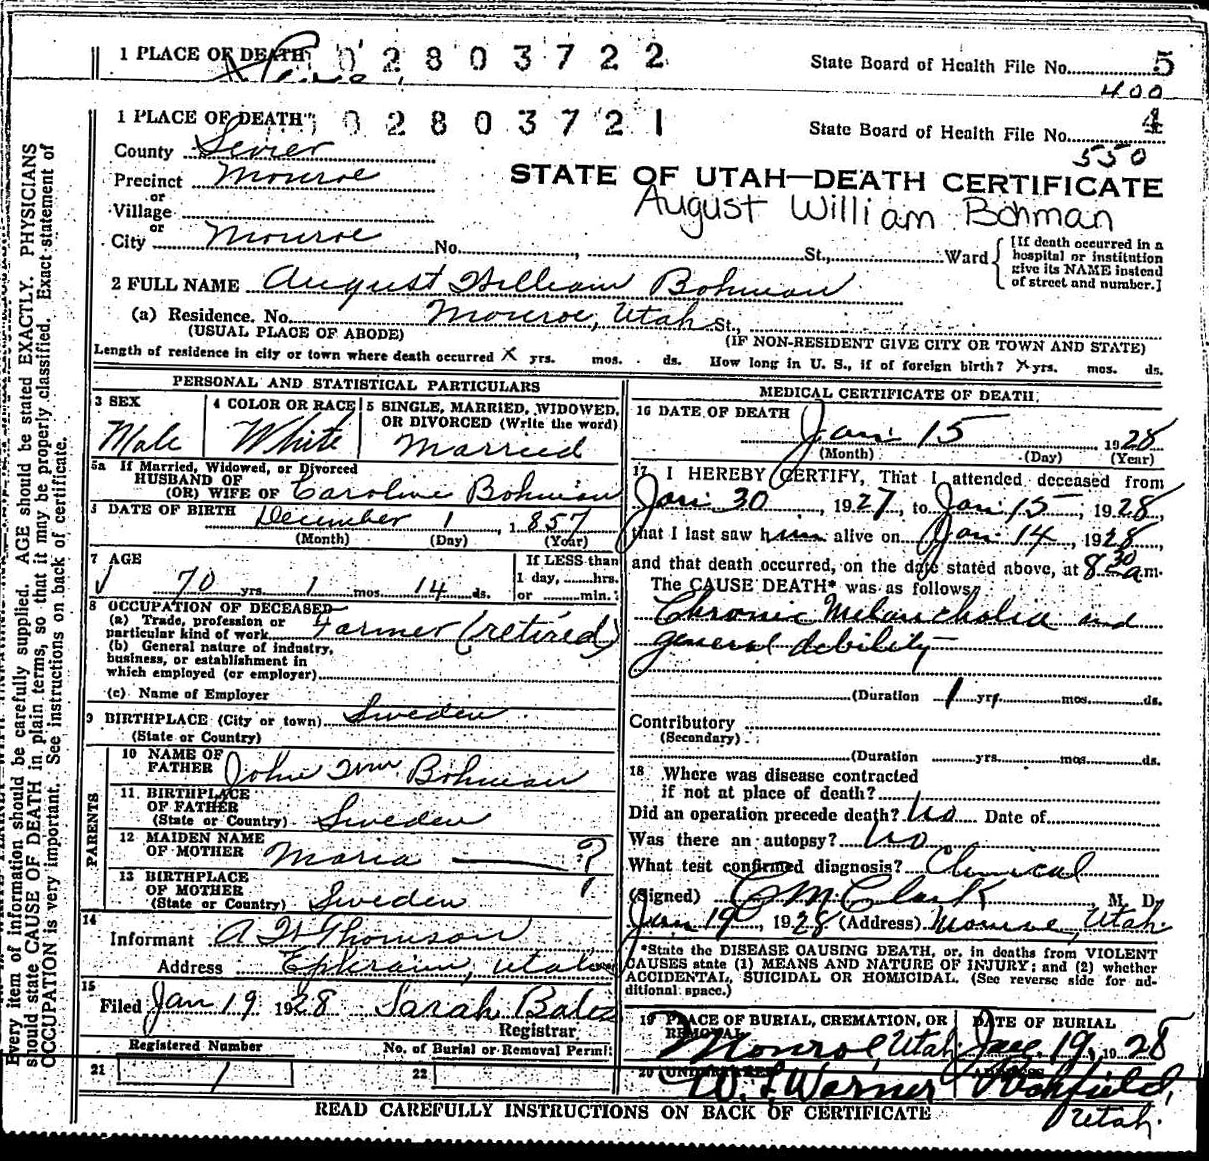 1 PLACE OF DEATH 02803722 State Board of Health File No. 5
400
1 PLACE OF DEATH 02803721 State Board of Health File No. 4
550
County Sevier
Precinct Monroe
or
Village
or
City Monroe No. , St., Ward
STATE OF UTAH—DEATH CERTIFICATE
August William Bohman
[If death occurred in a
hospital or institution
give its NAME instead
of street and number.]
2 FULL NAME August William Bohman
(a) Residence. No. Monroe, Utah St.,
(USUAL PLACE OF ABODE) (IF NON-RESIDENT GIVE CITY OR TOWN AND STATE)
Length of residence in city or town where death occurred X yrs. mos. ds. How long in U. S., if of foreign birth? X yrs. mos. ds.
PERSONAL AND STATISTICAL PARTICULARS
3 SEX
Male
4 COLOR OR RACE
White
5 SINGLE, MARRIED, WIDOWED,
OR DIVORCED (Write the word)
Married
5a If Married, Widowed, or Divorced
HUSBAND OF
(OR) WIFE OF Caroline Bohman
DATE OF BIRTH December 1, 1857
(Month) (Day) (Year)
7 AGE
70 yrs. 1 mos. 14 ds.
If LESS than
1 day, hrs.
or min.
8 OCCUPATION OF DECEASED
(a) Trade, profession or
particular kind of work Farmer (retired)
(b) General nature of industry,
business, or establishment in
which employed (or employer)
(c) Name of Employer
9 BIRTHPLACE (City or town) Sweden
(State or Country)
PARENTS
10 NAME OF
FATHER John Wm Bohman
11 BIRTHPLACE
OF FATHER
(State or Country) Sweden
12 MAIDEN NAME
OF MOTHER Maria — ?
13 BIRTHPLACE
OF MOTHER
(State or Country) Sweden
14
Informant A W Thomson
Address Ephraim, Utah
15
Filed Jan 19 1928 Sarah Bates
Registrar
Registered Number No. of Burial or Removal Permit
21 1 22
MEDICAL CERTIFICATE OF DEATH
16 DATE OF DEATH
Jan 15 1928
(Month) (Day) (Year)
17 I HEREBY CERTIFY, That I attended deceased from
Jan 30, 1927, to Jan 15, 1928,
that I last saw him alive on Jan 14, 1928,
and that death occurred, on the date stated above, at 8 30 a m.
The CAUSE DEATH* was as follows:
Chronic Melancholia and
general debility
(Duration 1 yrs mos. ds.
Contributory
(Secondary)
(Duration yrs. mos. ds.
18 Where was disease contracted
if not at place of death?
Did an operation precede death? No Date of
Was there an autopsy? No
What test confirmed diagnosis? Clinical
(Signed) C M Clark M. D.
Jan 19, 1928 (Address) Monroe, Utah
*State the DISEASE CAUSING DEATH, or, in deaths from VIOLENT
CAUSES state (1) MEANS AND NATURE OF INJURY; and (2) whether
ACCIDENTAL, SUICIDAL OR HOMICIDAL. (See reverse side for ad-
ditional space.)
19 PLACE OF BURIAL, CREMATION, OR
REMOVAL
Monroe, Utah
DATE OF BURIAL
Jan. 19, 1928
20 UNDERTAKER
W. L. Warner
ADDRESS
Richfield,
Utah.
READ CAREFULLY INSTRUCTIONS ON BACK OF CERTIFICATE
Every item of information should be carefully supplied. AGE should be stated EXACTLY. PHYSICIANS
should state CAUSE OF DEATH in plain terms, so that it may be properly classified. Exact statement of
OCCUPATION is very important. See instructions on back of certificate.